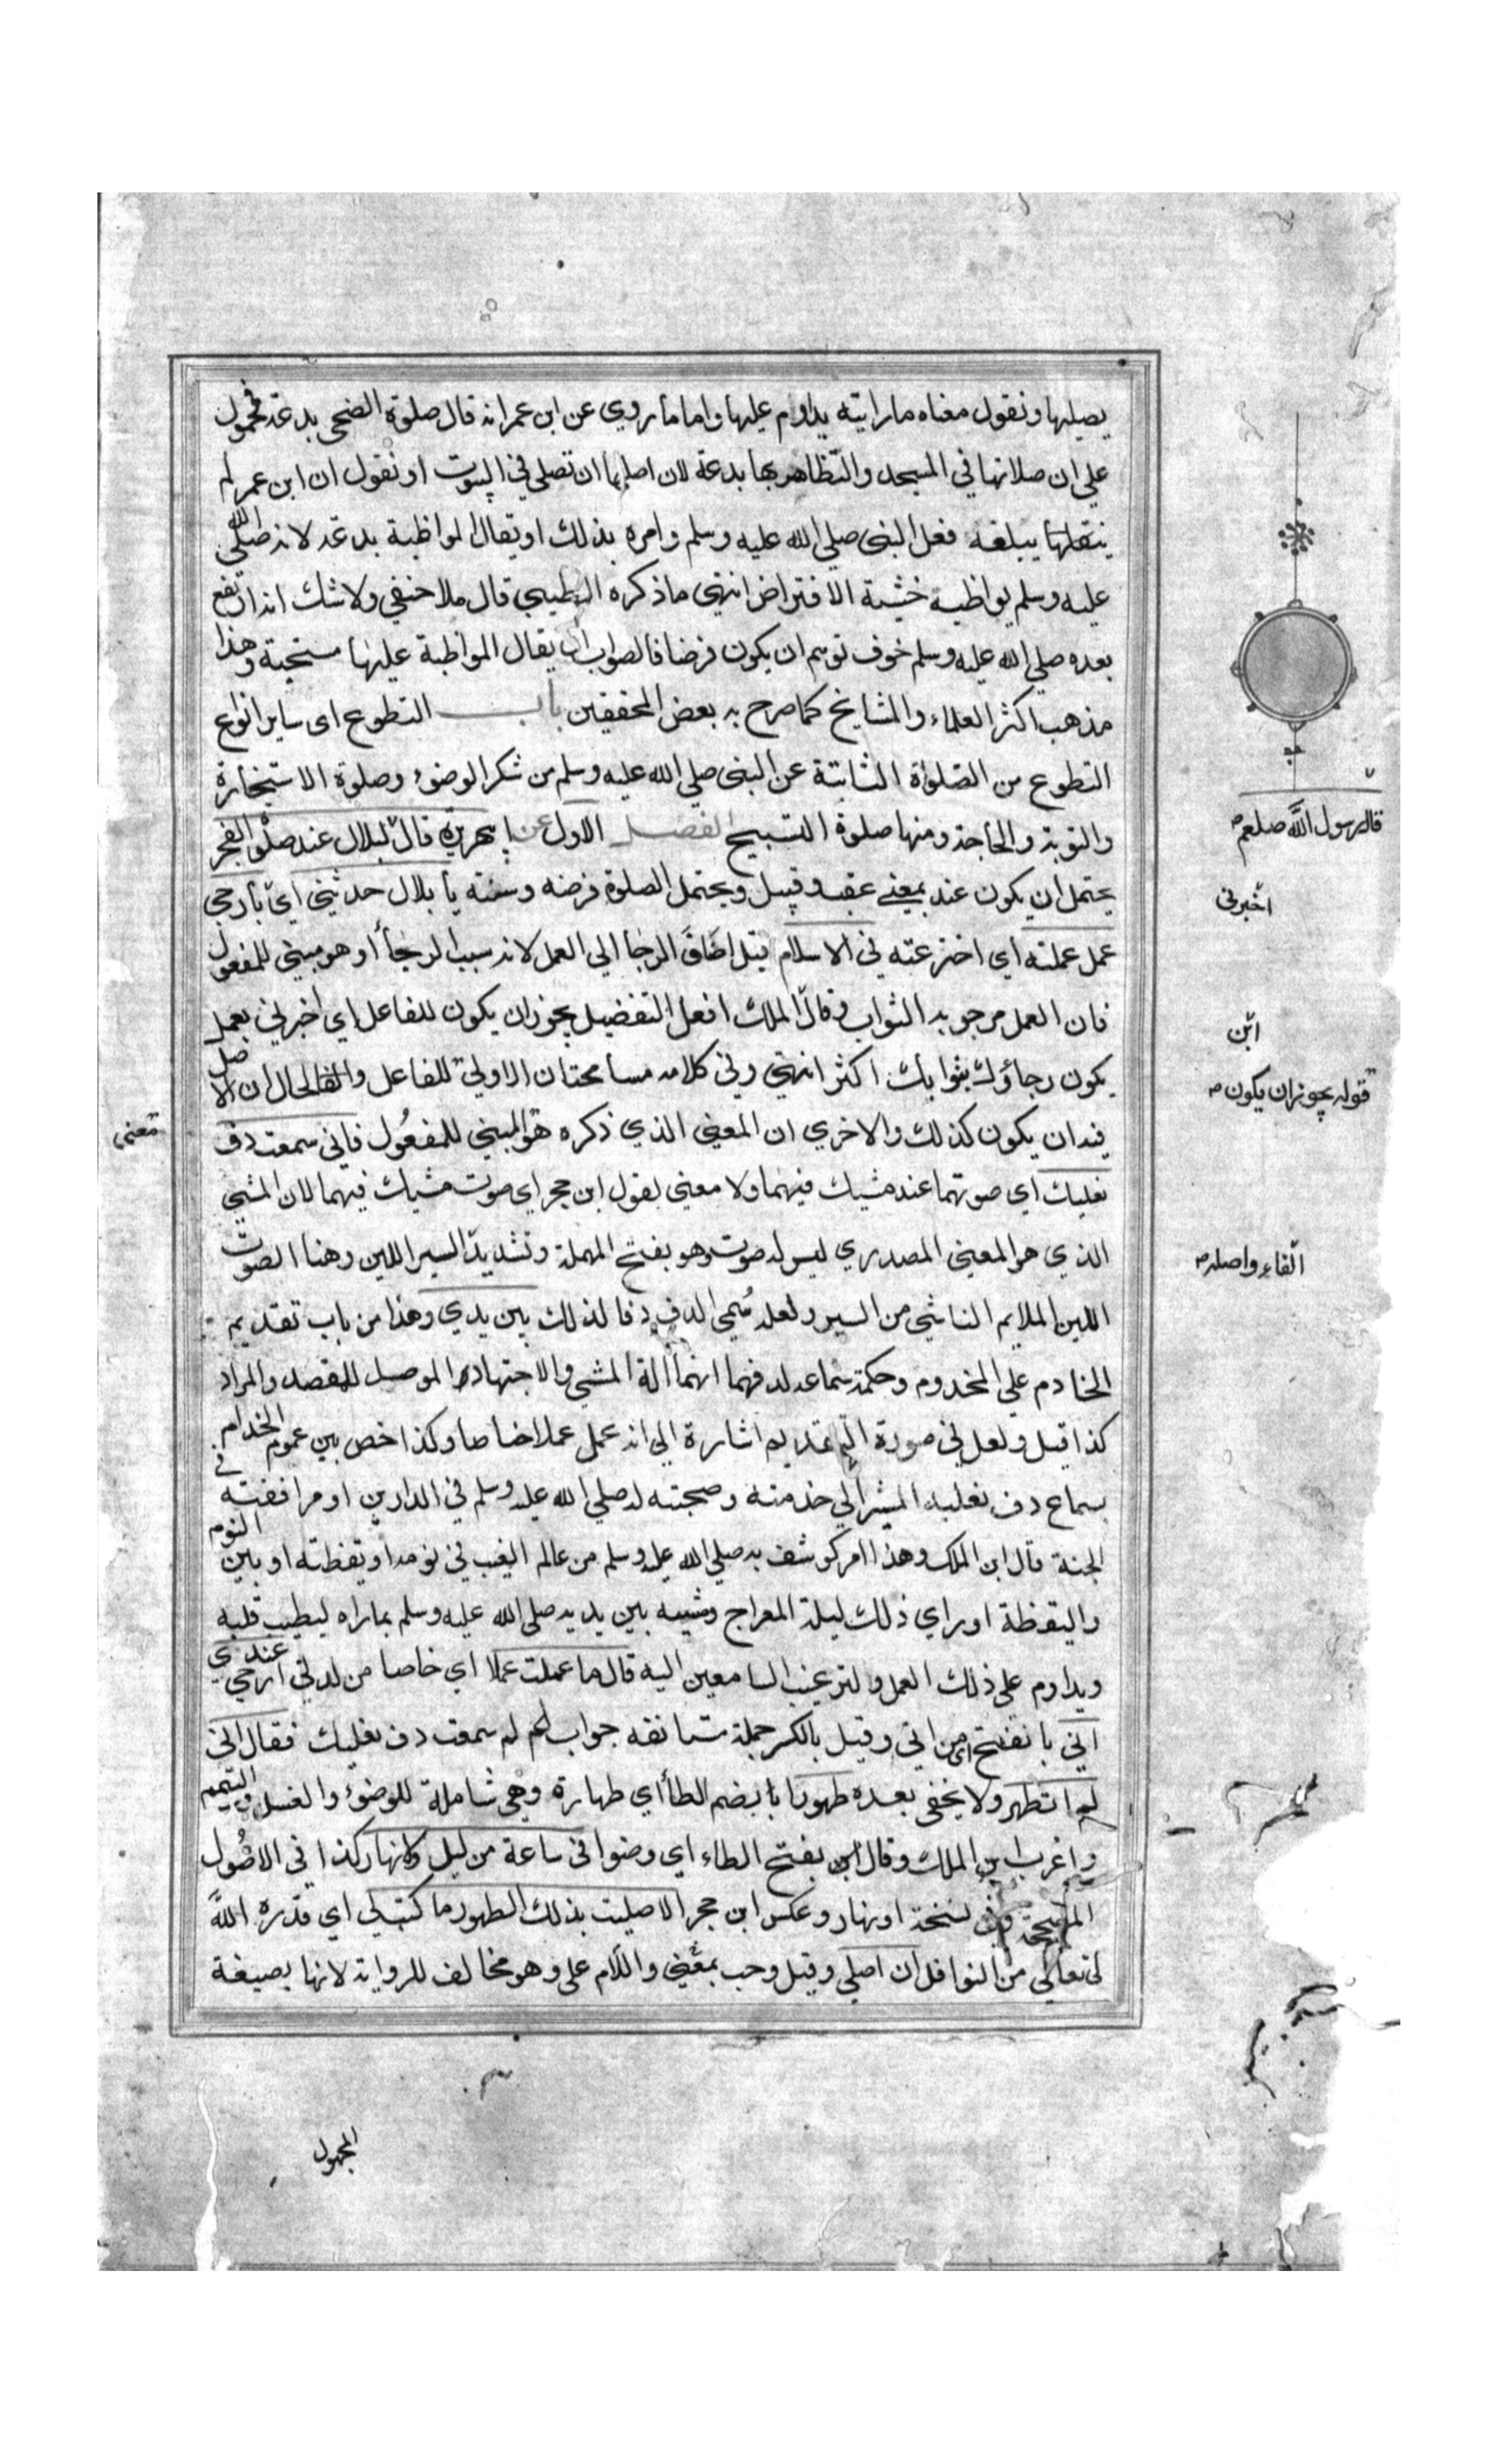 يصليها ونقول معناه ما رايته يداوم عليها واما ما روي عن ابن عمر انه قال صلوة الضحى بدعة فمحمول
علي ان صلاتها في المسجد والتظاهر بها بدعة لان اصلها ان تصلى في البيوت او نقول ان ابن عمر لم
يبلغه فعل النبي صلي الله عليه وسلم وامره بذلك او يقال المواظبة بدعة لانه صلي الله
عليه وسلم يواظب خشية الافتراض انتهي ما ذكره الطيبي قال ملا حنفي ولا شك انه ارتفع
بعده صلي الله عليه وسلم خوف توهم ان يكون فرضا فالصواب ان يقال المواظبة عليها مستحبة وهذا
مذهب اكثر العلماء والمشايخ كما صرح به بعض المحققين باب التطوع اى ساير انواع
التطوع من الصلواة الثابتة عن النبى صلي الله عليه وسلم من شكر الوضوء وصلوة الاستخارة
والتوبة والحاجة ومنها صلوة التسبيح الفصل الاول عن ابي هريرة قال لبلال عند صلوة الفجر
يحتمل ان يكون عند بمعني عقب وقبيل ويحتمل الصلوة فرضه وسنته يا بلال حدثني اي بارجي
عمل عملته اي اخترعته في الاسلام قيل اضاف الرجا الي العمل لانه سبب الرجأ او هو مبني للمفعول
فان العمل مرجو به الثواب وقال الملك افعل التفضيل يجوز ان يكون للفاعل اي اخبرني بعمل
يكون رجاؤك بثوابك اكثر انتهي وفي كلامه مسامحتان الاولي للفاعل والحال ان الاصل
فيه ان يكون كذلك والاخري ان المعني الذي ذكره هو المبني للمفعول فاني سمعت دف
نعليك اي صوتهما عند مشيك فيهما ولا معني لقول ابن حجر اي صوت مشيك فيهما لان المشي
الذي هو المعني المصدري ليس له صوت وهو بفتح المهملة وتشديد السير اللين وهنا الصوت
اللين الملايم الناشي من السير ولعله سمي الدف دفا لذلك بين يدي وهذا من باب تقديم
الخادم علي المخدوم وحكمة سماعه لدفهما انهما آلة المشي والاجتهاد الموصل للمقصد والمراد
كذا قيل ولعل في صورة التقديم اشارة الي انه عمل عملا خاصا وكذا خص بين عموم الخدام
بسماع دف نعليه المشير الي خدمته وصحبته له صلي الله عليه وسلم في الدارين او مرافقته في
الجنة قال ابن الملك وهذا امر كوشف به صلي الله عليه وسلم من عالم الغيب في نومه او يقظته او بين النوم
واليقظة او راي ذلك ليلة المعراج ومشيه بين يديه صلى الله عليه وسلم بما راه ليطيب قلبه
ويداوم علي ذلك العمل ولترغيب السامعين اليه قال ما عملت عملا اي خاصا من لدني ارجي عندي
اني بالفتح اى من اني وقيل بالكسر جملة مستانفه جواب لم سمعت دف نعليك فقال اني
لم اتطهر ولا يخفى بعده طهورا بضم الطا اي طهارة وهي شاملة للوضوء والغسل والتيمم
واغرب ابن الملك وقال بفتح الطاء اي وضوا في ساعة من ليل ولا نهار كذا في الاصول
المصححة وفي نسخة او نهار وعكس ابن حجر الا صليت بذلك الطهور ما كتب لي اي قدره الله
لي تعالي من النوافل ان اصلي وقيل وجب بمعني واللام على وهو مخالف للرواية لانها بصيغة
قال رسول الله صلعم
اخبرني
ابن
قوله يجوز ان يكون
معنى
الفاء واصله
المجهول